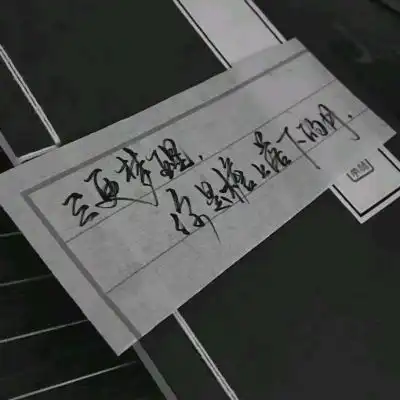 三更梦醒,
你是檐上落下的月.